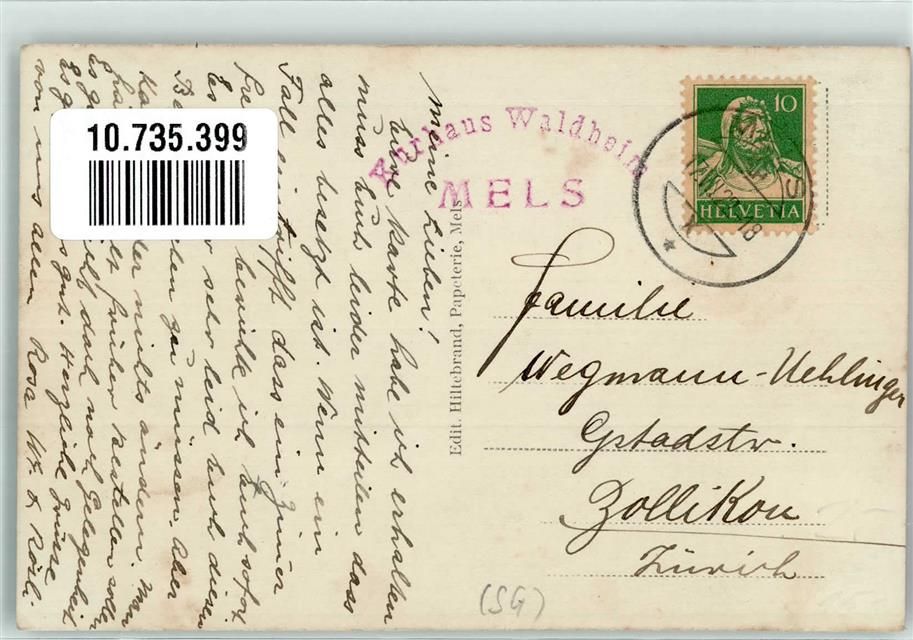 10.735.399
Kurhaus Waldheim
MELS
10
HELVETIA
MELS
Edit. Hiltebrand, Papeterie, Mels
Meine Lieben!
Eure Karte habe ich erhalten
muss Euch leider mitteilen dass
alles besetzt ist. Wenn ein
Fall eintrifft dass ein Zimer
frei berichte ich Euch sofort
Es sehr leid Euch diesen
zu müssen. Aber
nichts ändern. Man
früher bestellen sollen
doch noch Gelegenheit
gut. Herzliche Grüsse
von uns allen Rosa W. & Rösli.
Familie
Wegmann-Uehlinger
Gstadstr.
Zollikon
Zürich
(SG)